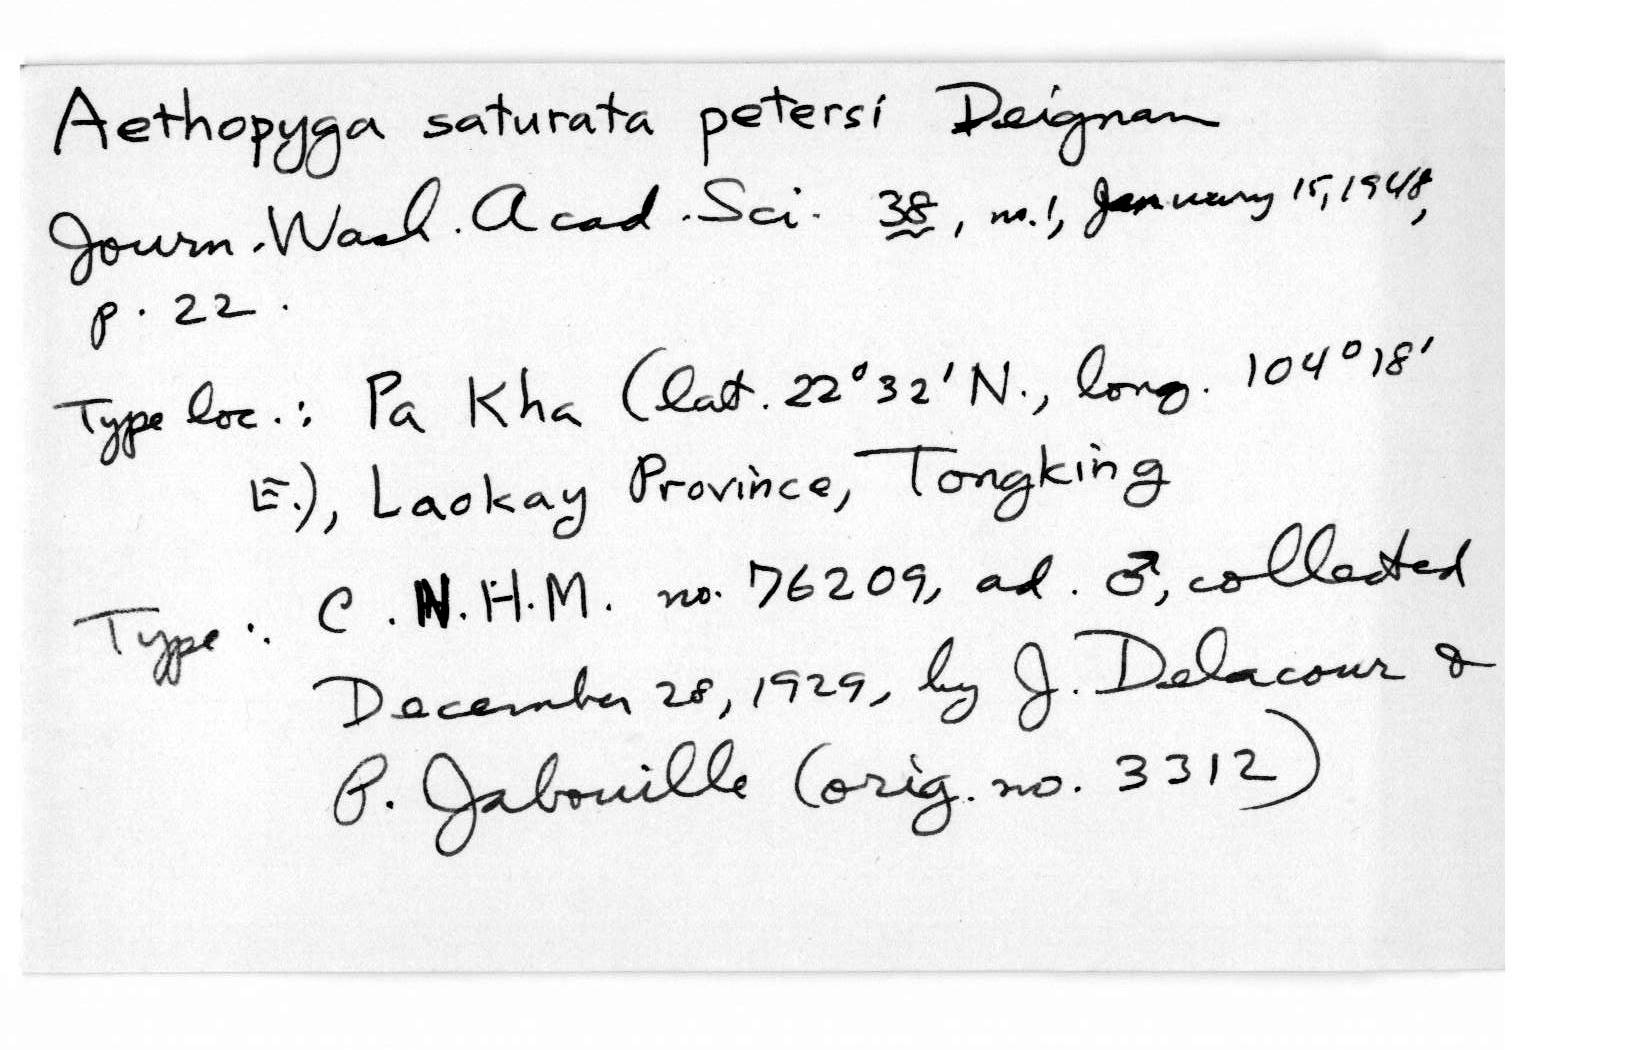 Aethopyga saturata petersi Deignan
Journ. Wash. Acad. Sci. 38, no. 1, January 15, 1948,
p. 22.
Type loc.: Pa Kha (lat. 22°32' N., long. 104°18'
E.), Laokay Province, Tongking
Type: C.N.H.M. no. 76209, ad. ♂, collected
December 28, 1929, by J. Delacour &
P. Jabouille (orig. no. 3312)